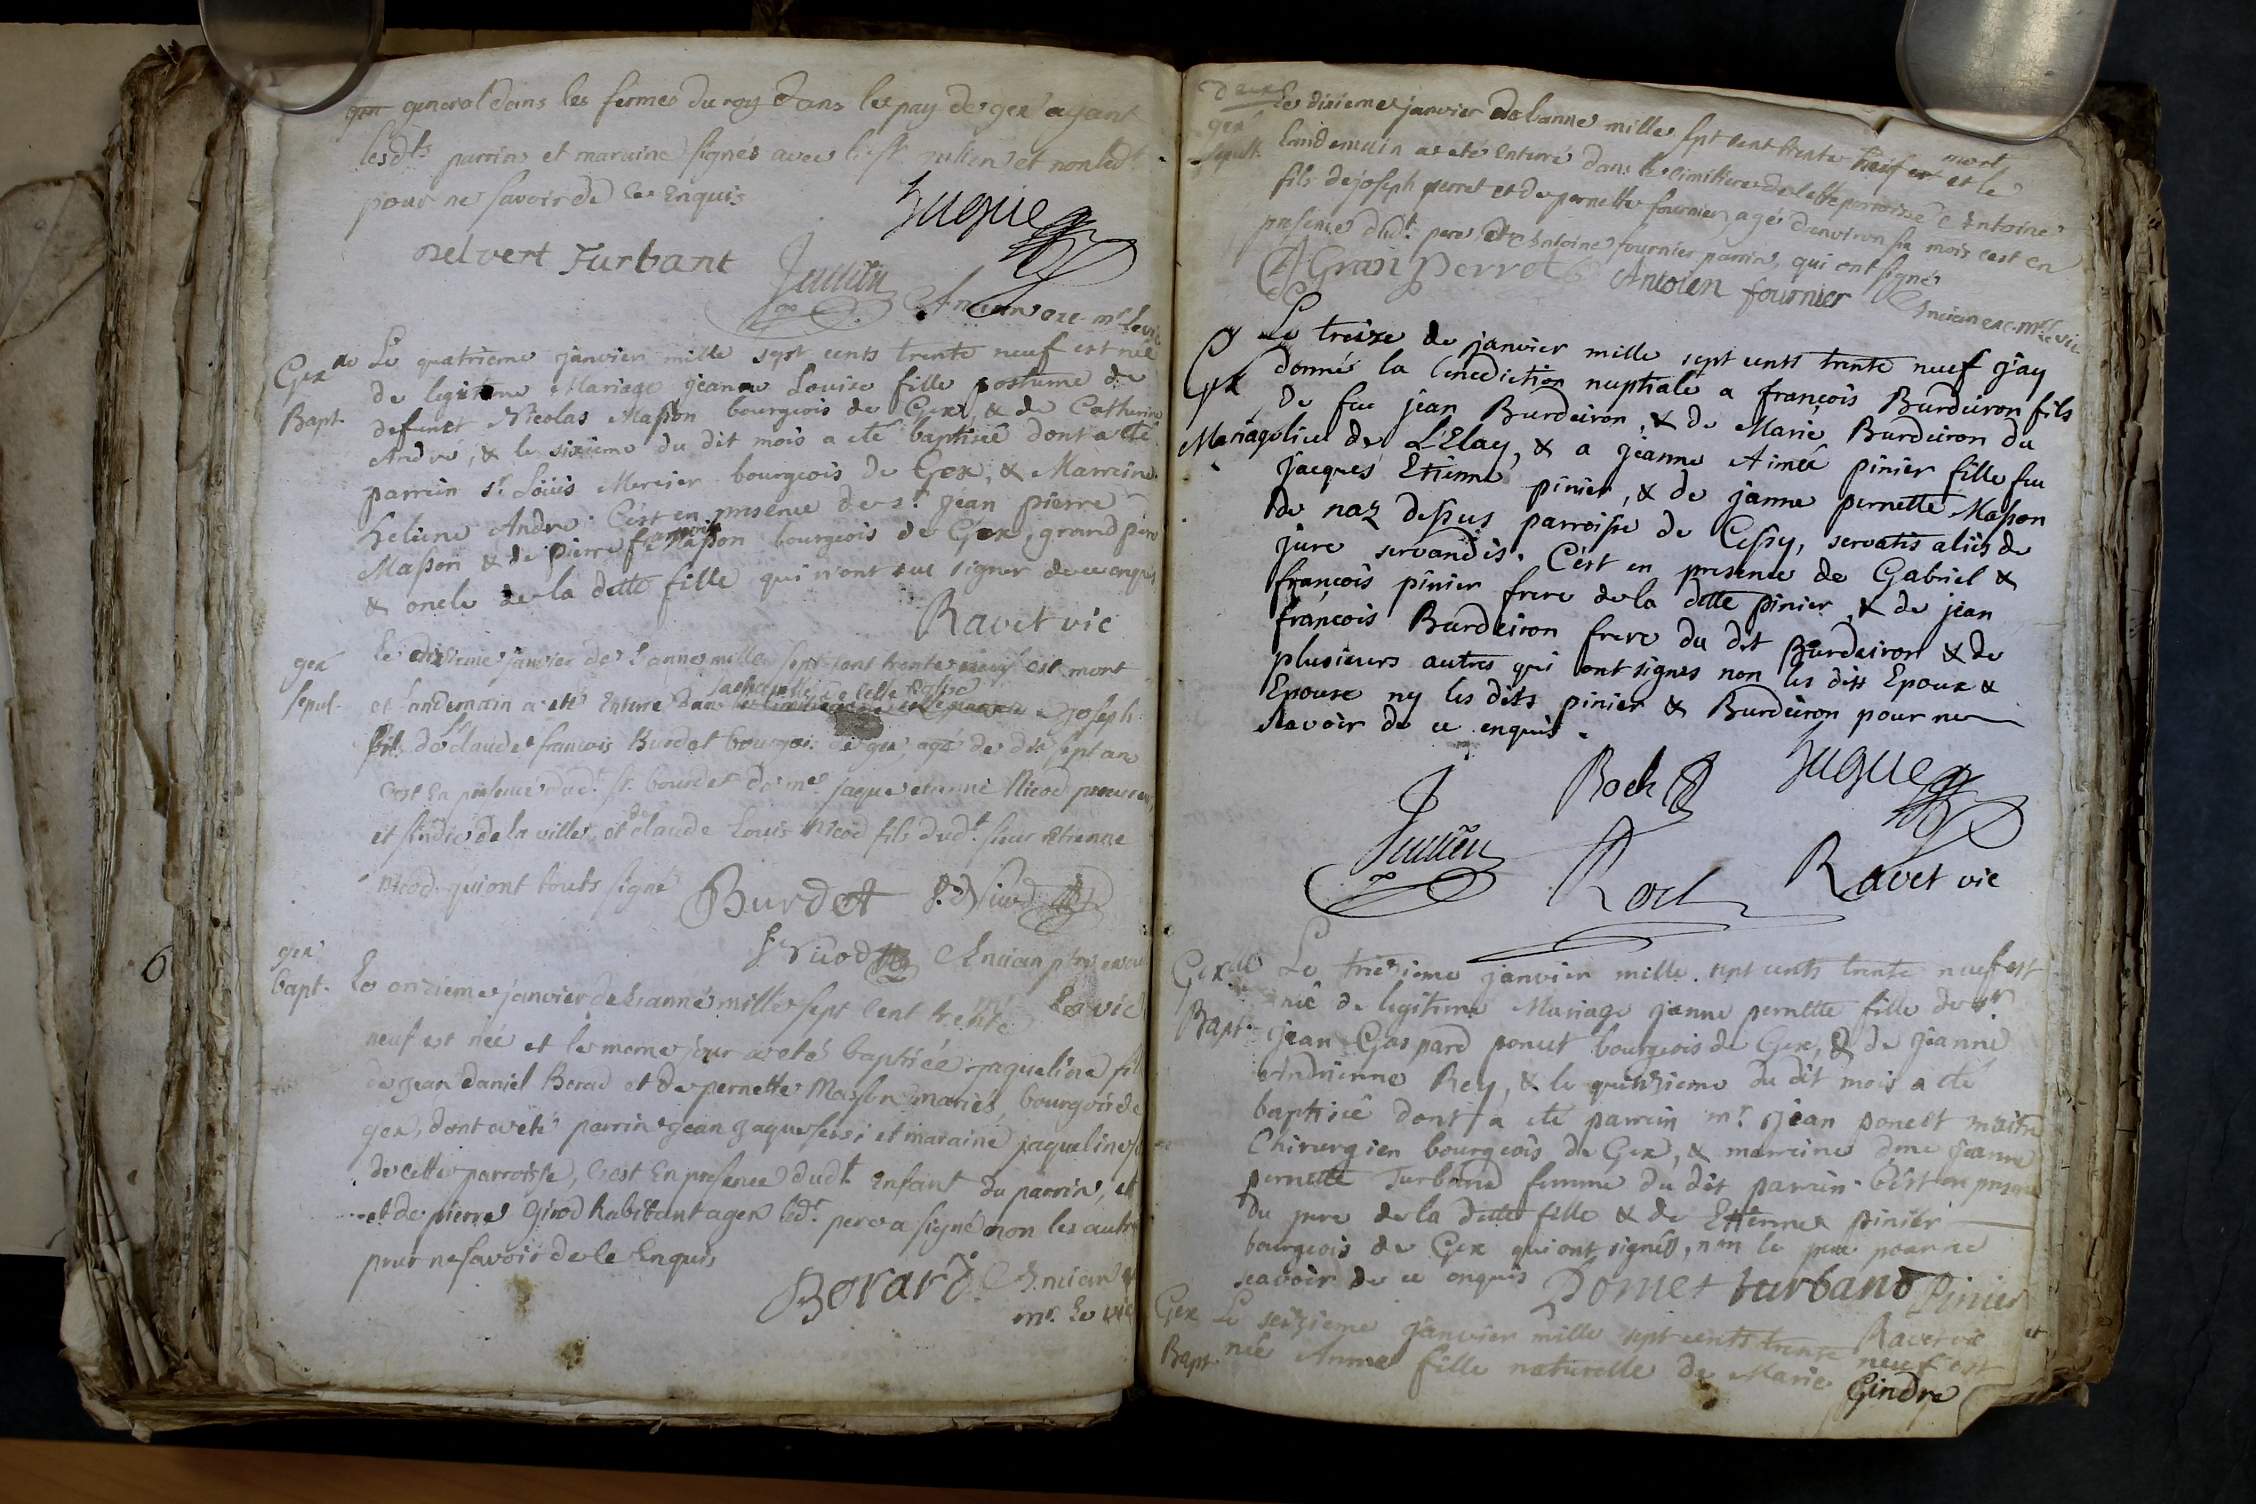 general dans les fermes du roy dans le pay de gex ayant
lesdts parrins et maraine signés avec le sr Jullien et non ledt
pour ne savoir de ce Enquis
Hugue
Delvert Turbant
Jullien
Ancian exc. mr le vic
Gex
Le quatrieme janvier mille sept cents trente neuf est née
de legitime Mariage jeanne Louise fille postume de
Bapt.
defunct Nicolas Masson bourgeois de Gex, & de Catherine
André, & le sixieme du dit mois a eté baptisée dont a eté
parrein sr. Loüis Mercier bourgeois de Gex, & Marreine
Heleine André. C'est en presence de sr. jean pierre
Masson & de pierre françois Masson bourgeois de Gex, grand pere
& oncle de la dette fille qui n'ont sçu signer de ce enquis
Ravet vic
gex
Le dixieme janvier de l'anné mille sept cent trente neuf est mort
sepul.
et landemain a eté Enterré dans la chapelle de cette Eglise joseph
fils de sr claude françois Burdet bourgois de gex, agé de dix sept an
c'est En présence dudt. sr. bourdet de me. jaque etienne Nicod procureur
et sindic de la ville, et de claude Louis Nicod fils dudt. sieur Etienne
Nicod qui ont touts signé
Burdet
Nicod
Nicod
Ancian ptre exc
mr. Le vic
gex
bapt.
Le onzieme janvier de L'anné mille sept Cent trente
neuf est née et le meme jour a eté baptisée jaqueline fil
de jean daniel Berad et de pernette Masson mariés, bourgois de
gex, dont a eté parrin jean jaque et maraine jaqueline
de cette parroisse, c'est En présence dudt Enfant du parrin, et
et de pierre Girod habitant a gex ledt. pere a signé non les autre
pour ne savoir de le Enquis
Berard
Ancian
mr. Le vic
6
gex
sepult.
Le dixieme janvier de l'anné mille sept cent trente neuf est mort et le
lendemain a eté Enterré dans le cimitiere de cette parroisse Antoine
fils de joseph perret et de pernette fournier, agé d'environ six mois c'est en
présence dudt. pere, et Antoine fournier parrin, qui ont signés
Gran perret
Antoien fournier
Ancian exc. mr le vic
Gex
Mariage
Le treize de janvier mille sept cents trente neuf j'ay
donné la benediction nuptiale a françois Burdeiron fils
de feu jean Burdeiron, & de Marie Burdeiron du
lieu de L'Elay, & a jeanne Aimée pinier fille feu
jacques Etienne pinier, & de janne pernette Masson
de naz dessus parroisse de Cessy, servatis aliis de
jure servandis. C'est en presence de Gabriel &
françois pinier frere de la dette pinier, & de jean
françois Burdeiron frere du dit Burdeiron & de
plusieurs autres qui ont signés non les dits Epoux &
Epouse ny les dits pinier & Burdeiron pour ne
sçavoir de ce enquis.
Roch
Hugue
Jullien
Roch
Ravet vic
Gex
Bapt.
Le treizieme janvier mille sept cents trente neuf est
née de legitime Mariage janne pernette fille de sr.
jean Gaspard ponet bourgeois de Gex, & de jeanne
Andrienne Rey, & le quinzieme du dit mois a eté
baptisée dont a eté parrein mr. jean ponet maitre
Chirurgien bourgeois de Gex, & marreine dme jeanne
pernette Turband femme du dit parrein. C'est en presence
du pere de la dette fille & de Ettienne pinier
bourgeois de Gex qui ont signés, non le pere pour ne
sçavoir de ce enquis
Ponet
turband
Pinier
Ravet vic
Gex
Bapt.
Le seizieme janvier mille sept cents trente neuf est
née Anne fille naturelle de Marie Gindre